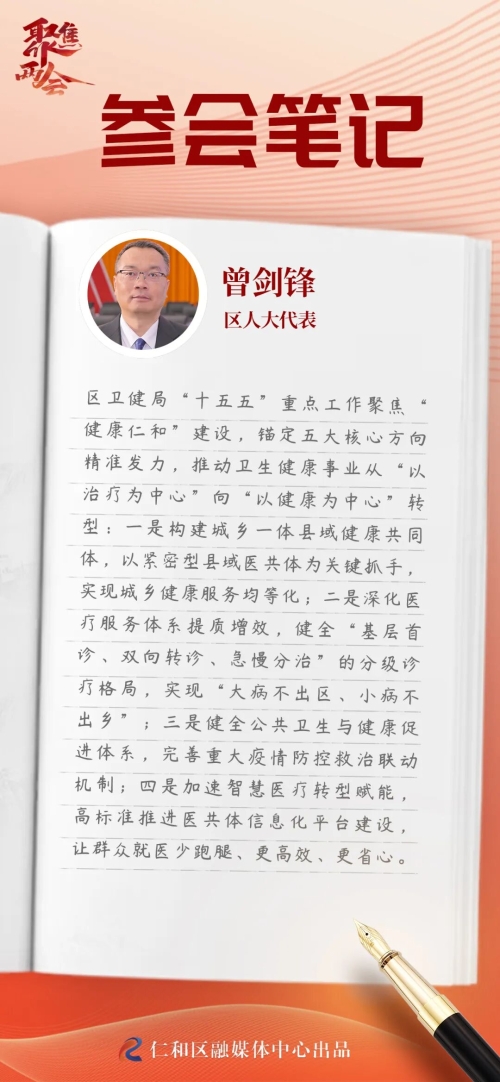 聚焦
两会
参会笔记
曾剑锋
区人大代表
区卫健局“十五五”重点工作聚焦“
健康仁和”建设，锚定五大核心方向
精准发力，推动卫生健康事业从“以
治疗为中心”向“以健康为中心”转
型：一是构建城乡一体县域健康共同
体，以紧密型县域医共体为关键抓手，
实现城乡健康服务均等化；二是深化医
疗服务体系提质增效，健全“基层首
诊、双向转诊、急慢分治”的分级诊
疗格局，实现“大病不出区、小病不
出乡”；三是健全公共卫生与健康促
进体系，完善重大疫情防控救治联动
机制；四是加速智慧医疗转型赋能，
高标准推进医共体信息化平台建设，
让群众就医少跑腿、更高效、更省心。
仁和区融媒体中心出品